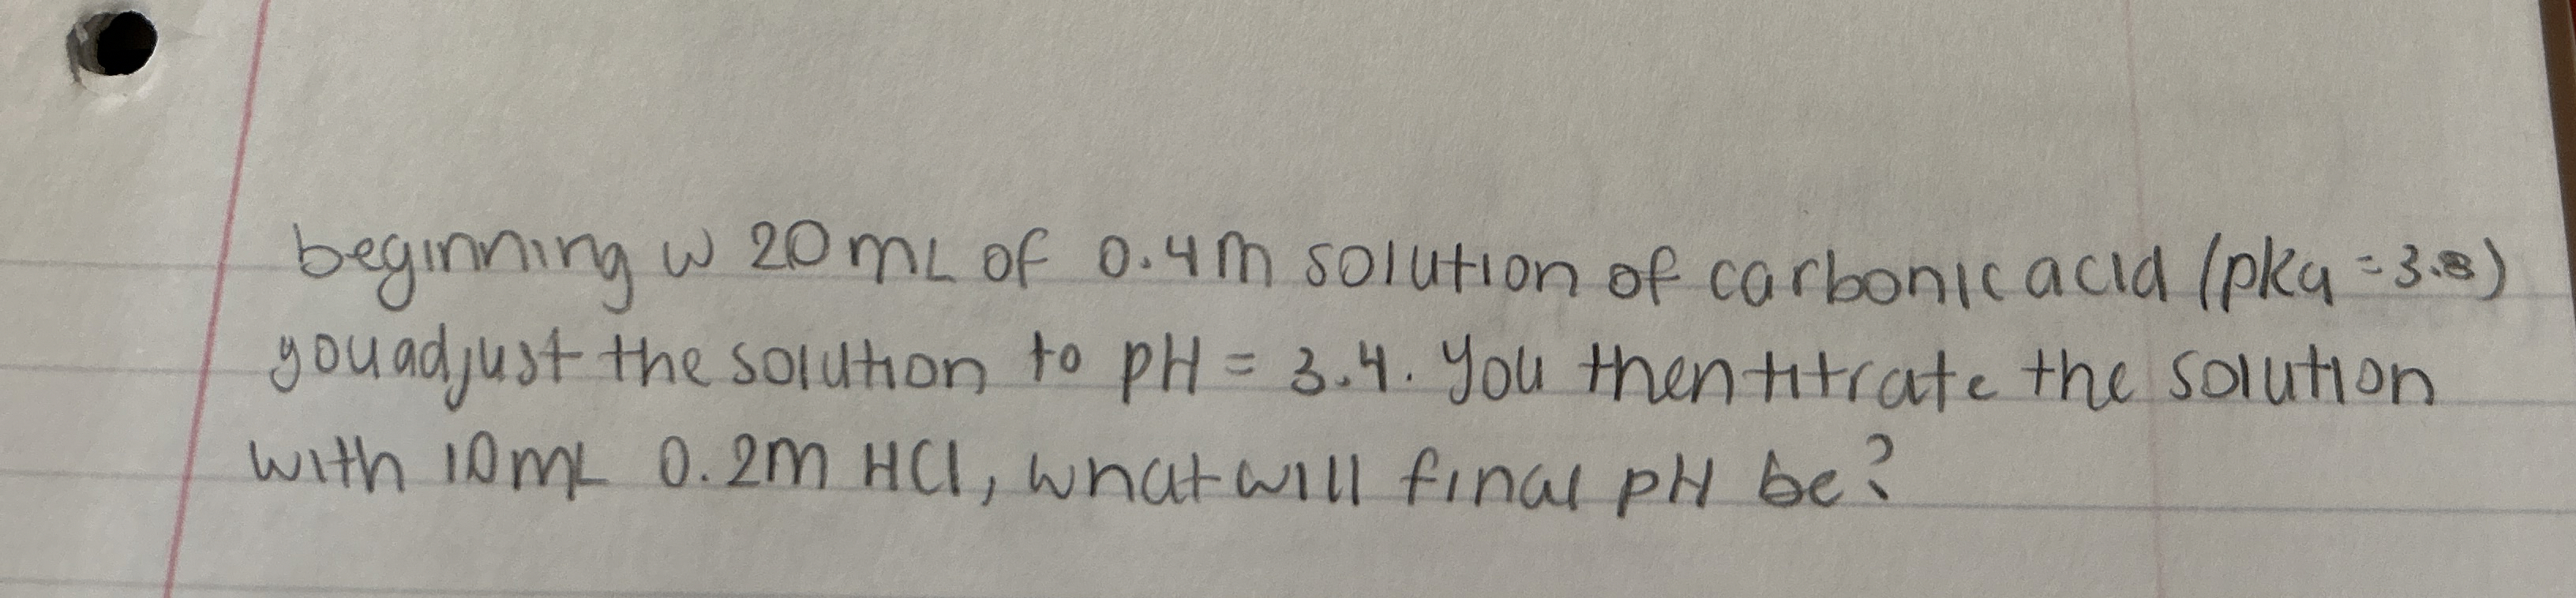 beginning w 20mL of 0.4M solution of carbonic acid (pka = 3.8)
you adjust the solution to pH = 3.4. You then titrate the solution
with 10mL 0.2M HCl, what will final pH be?